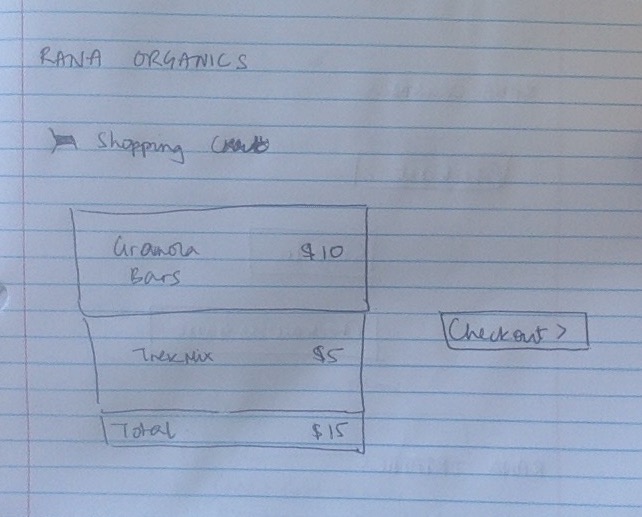 RANA ORGANICS
Shopping
Granola $10
Bars
Trek Mix $5
Total $15
Checkout >